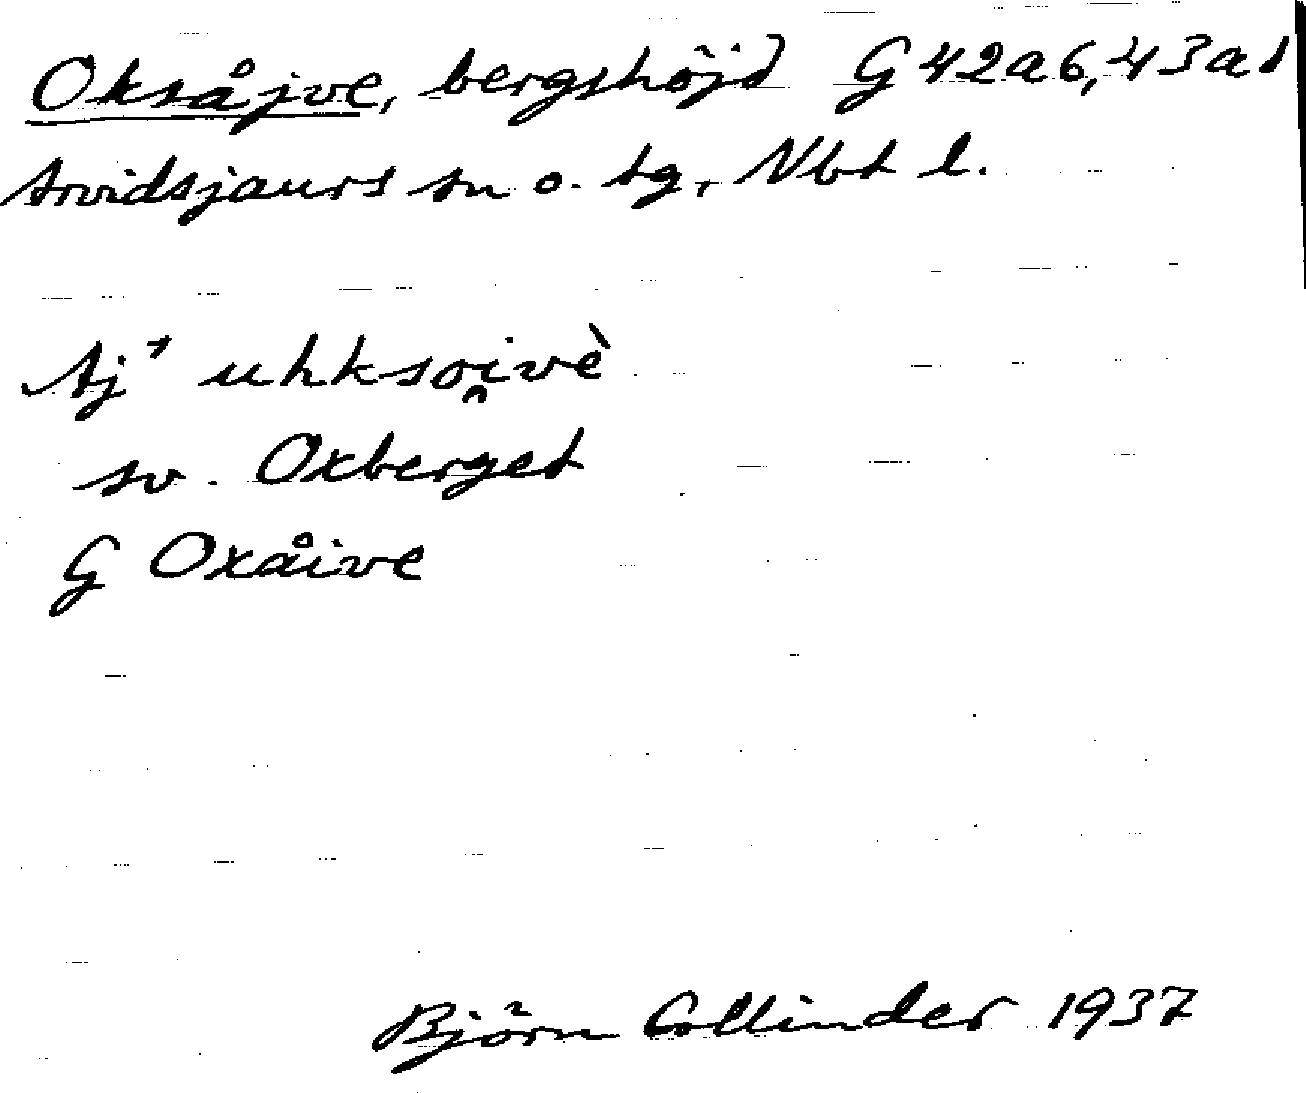 Oksåjve, bergshöjd G 42a6, 43a1
Arvidsjaurs sn o. tg, Nbt l.
Aj⁺ uhksoi̭vè
sv. Oxberget
G Oxåive
Björn Collinder 1937